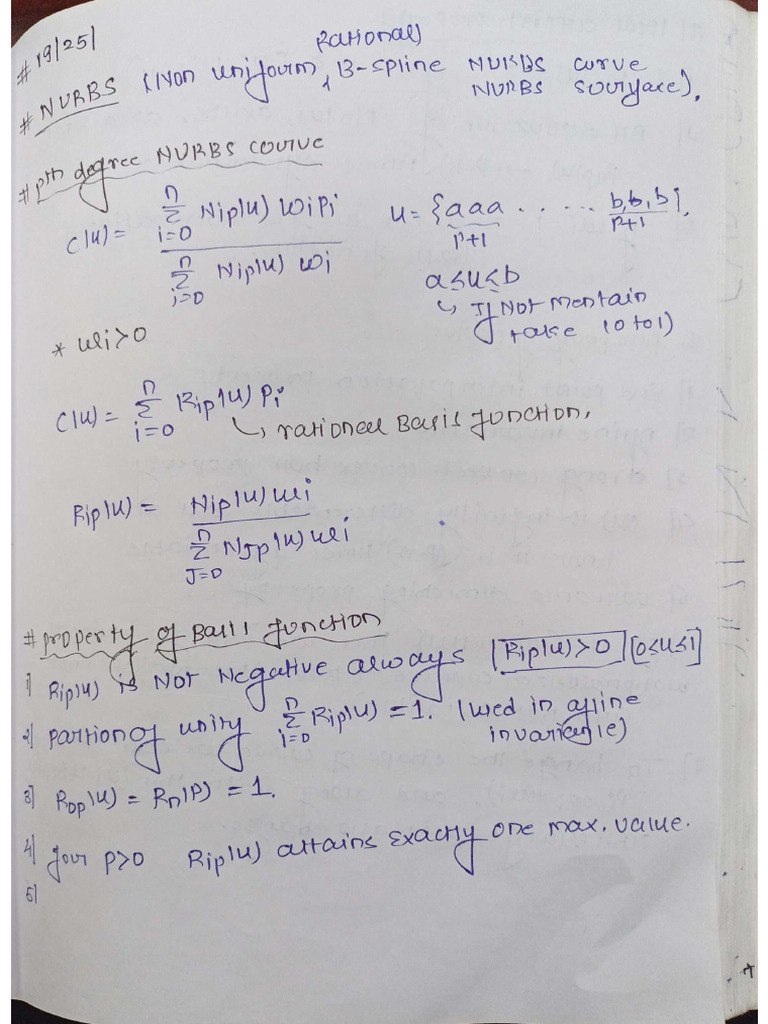 # 19/25/
Rational)
# NURBS (Non uniform, B-spline NURBS curve
NURBS surface).
# pth degree NURBS courve
C(u) = n Σ i=0 Nip(u) wi Pi / n Σ i=0 Nip(u) wi
u = {a a a ..... b, b, b},
P+1 P+1
a ≤ u ≤ b
↳ If Not mentain
take (0 to 1)
* wi > 0
C(u) = n Σ i=0 Rip(u) Pi
↳ rational Basis function,
Rip(u) = Nip(u) wi / n Σ J=0 NJp(u) wi
# property of Basis function
1] Rip(u) is Not Negative always [Rip(u) > 0] [0≤u≤1]
2] Partion of unity n Σ i=0 Rip(u) = 1. (used in afine
invarience)
3] Rop(u) = Rn(P) = 1.
4] four p>0 Rip(u) attains exactly one max. value.
5]